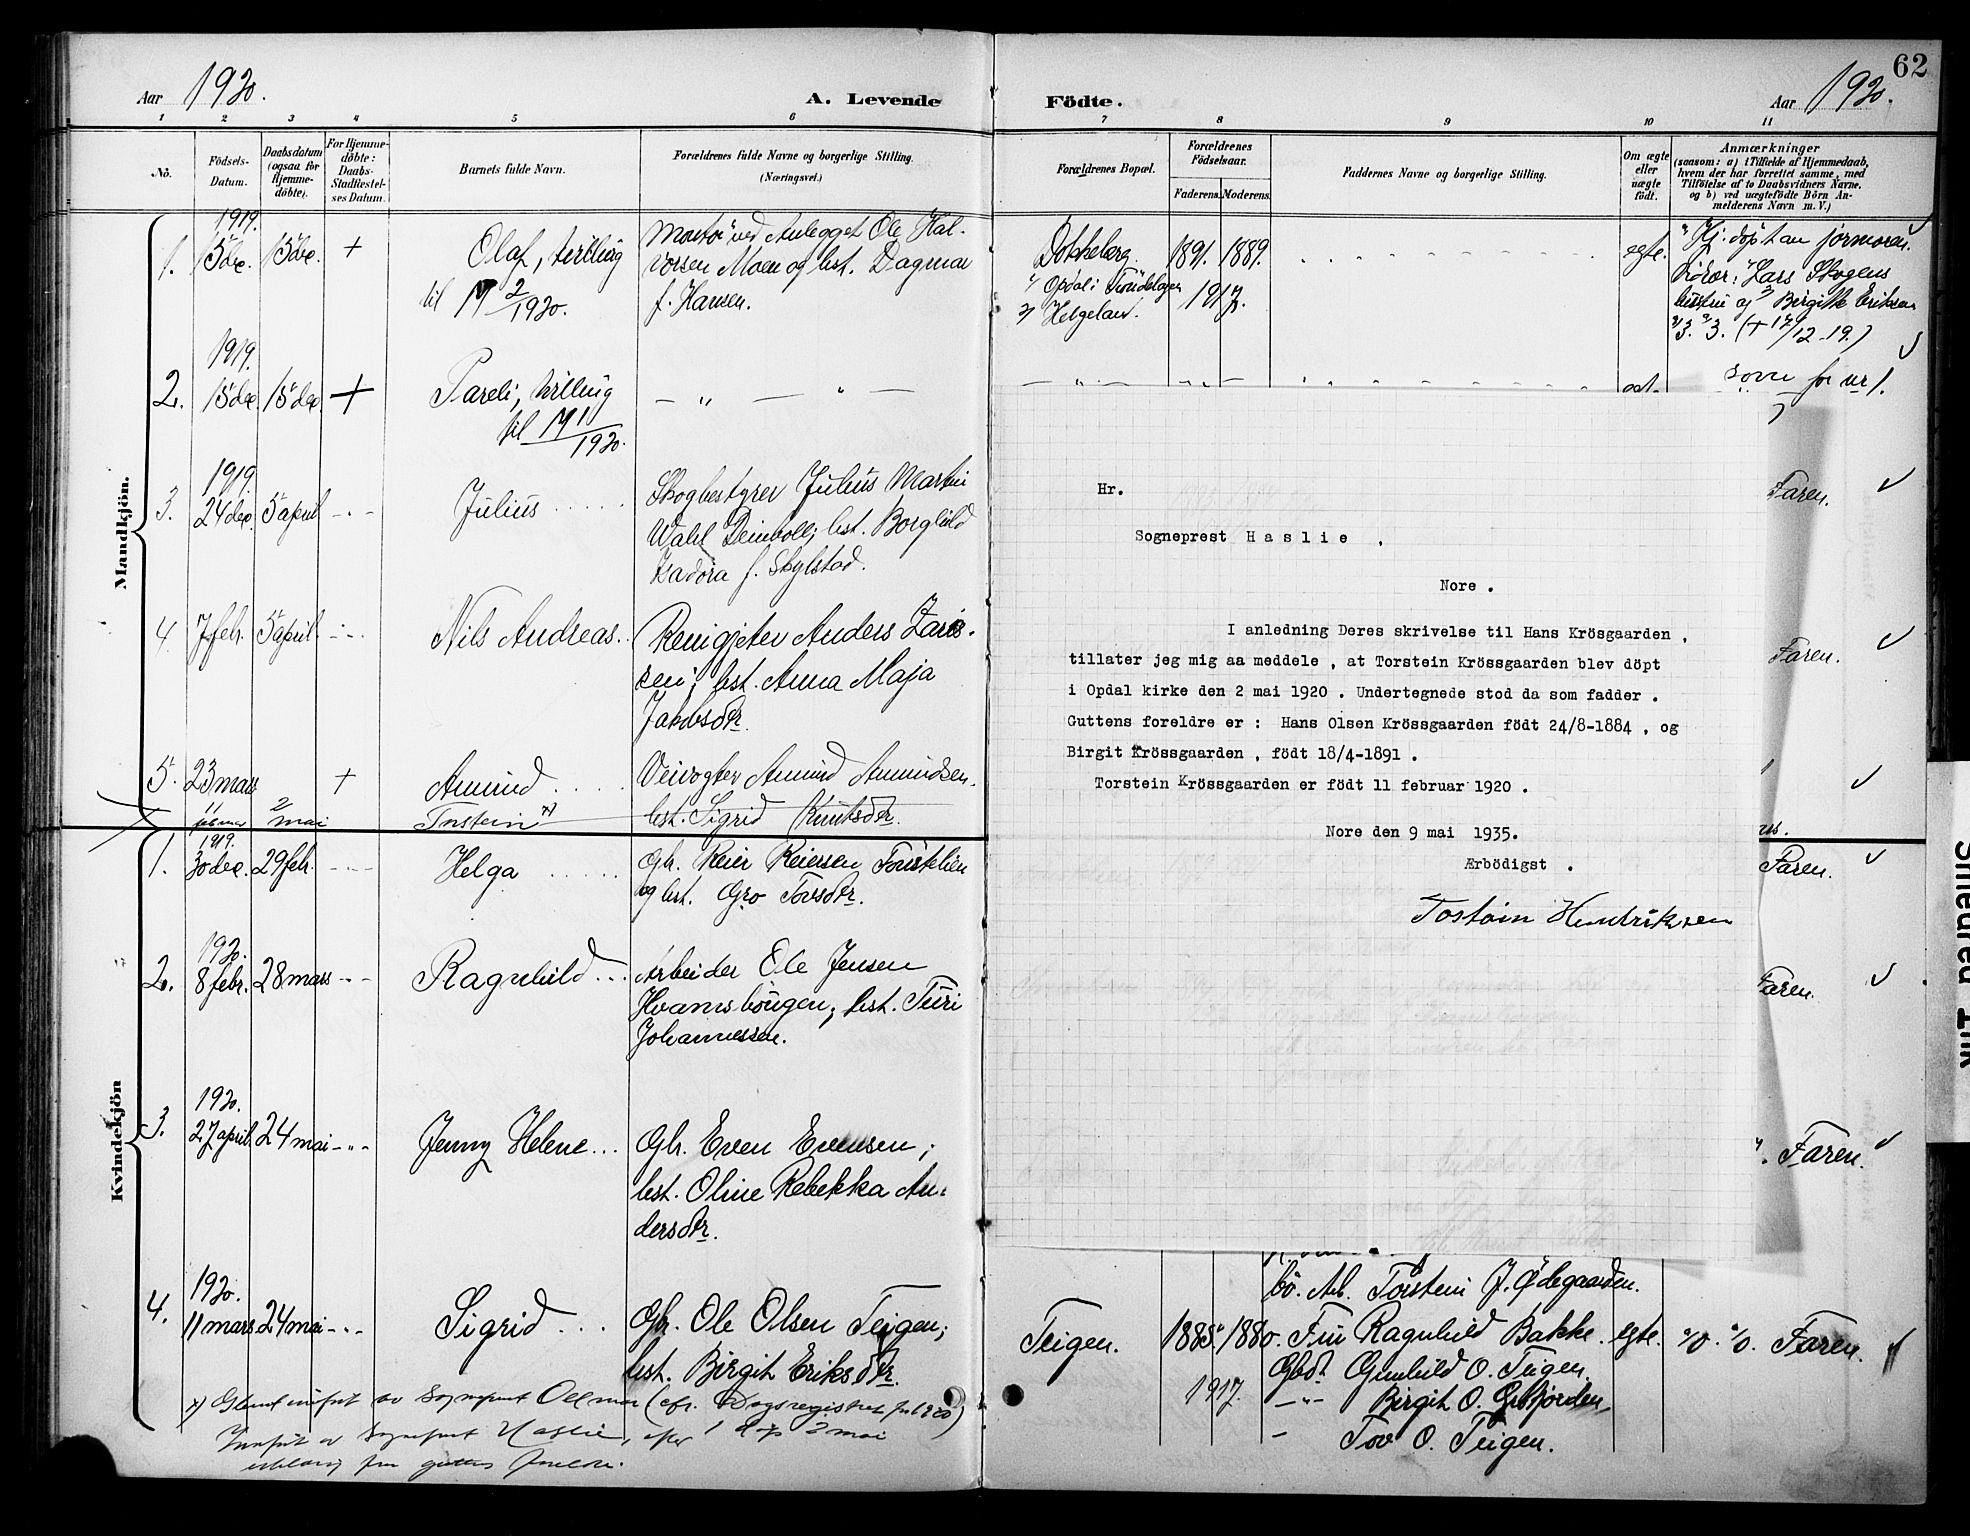 62
Aar 1920. A. Levende Födte. Aar 1920.
1 2 3 4 5 6 7 8 9 10 11
No.
Födsels-
Datum.
Daabsdatum
(ogsaa for
Hjemme-
döbte).
For Hjemme-
döbte:
Daabs-
Stadfæstel-
ses Datum.
Barnets fulde Navn.
Forældrenes fulde Navne og borgerlige Stilling.
(Næringsvei.)
Forældrenes Bopæl.
Forældrenes
Födselsaar.
Faderens. Moderens.
Faddernes Navne og borgerlige Stilling.
Om ægte
eller
uægte
födt.
Anmærkninger
(saasom: a) i Tilfælde af Hjemmedaab,
hvem der har forrettet samme, med
Tilföielse af to Daabsvidners Navne,
og b) ved uægtefödte Börn An-
melderens Navn m. V.)
Mandkjön.
1919.
1. 15 dec. 15 dec. + Olaf, tvilling
til 2
1920.
Montör ved Anlegget Ole Hal-
vorsen Moen og hst. Dagmar
f. Hansen.
Dokkeberg. 1891. 1889. egte.
Opdal i Tröndelagen
Helgeland.
1917.
Hj. döpt av jormoren.
Lars Skogens
hustru og Birgitte Eriksen
3. 3. (+ 17/12-19.)
1919.
2. 15 dec. 15 dec. + Pareli, tvilling
til 1
1920.
— " — " —
som for nr 1.
1919.
3. 24 dec. 5 april - " - Julius
Skogbestyrer Julius Martin
Wahl Deinboll; hst. Borghild
Isadora f. Skylstad.
Faren.
4. 7 febr. 5 april - " - Nils Andreas
Rengjeter Anders Lars-
sen; hst. Anna Maja
Jakobsdtr.
Faren.
5. 23 mars + Amund
Veivogter Amund Amundsen.
hst. Sigrid Knutsdtr.
11 februar 2 mai Torstein x)
Kvindekjön
1919.
1. 30 dec. 29 febr. - - - Helga
Gbr. Reier Reiersen
og hst. Gro Tovsdtr.
Faren.
1920.
2. 8 febr. 28 mars - - Ragnhild
Arbeider Ole Jensen
Hvamshaugen; hst. Turi
Johannessen.
Faren.
1920.
3. 27 april. 24 mai - " - Jenny Helene
Gbr. Even Evensen;
hst. Oline Rebekka An-
dersdtr.
Faren.
1920.
4. 11 mars 24 mai - " - Sigrid
Gbr. Ole Olsen Teigen;
hst. Birgit Eriksdtr.
Teigen. 1885. 1880.
1917.
bö. Arb. Torstein J. Ödegaarden.
Fru Ragnhild Bakke. egte. Faren.
Gbd. Gunhild O. Teigen.
— " — Birgit O.
— Tov O. Teigen.
x) Glemt innført av sogneprest (cfr. Dagsregistret for 1920)
Innført av sogneprest Haslie, efter
2 mai
erklæring fra guttens foreldre.
Hr.
Sogneprest Haslie .
Nore .
I anledning Deres skrivelse til Hans Krösgaarden ,
tillater jeg mig aa meddele , at Torstein Krössgaarden blev döpt
i Opdal kirke den 2 mai 1920 . Undertegnede stod da som fadder .
Guttens foreldre er : Hans Olsen Krössgaarden födt 24/8-1884 , og
Birgit Krössgaarden , födt 18/4-1891 .
Torstein Krössgaarden er födt 11 februar 1920 .
Nore den 9 mai 1935.
Ærbödigst .
Tostein Hendriksen
Smeared Ink